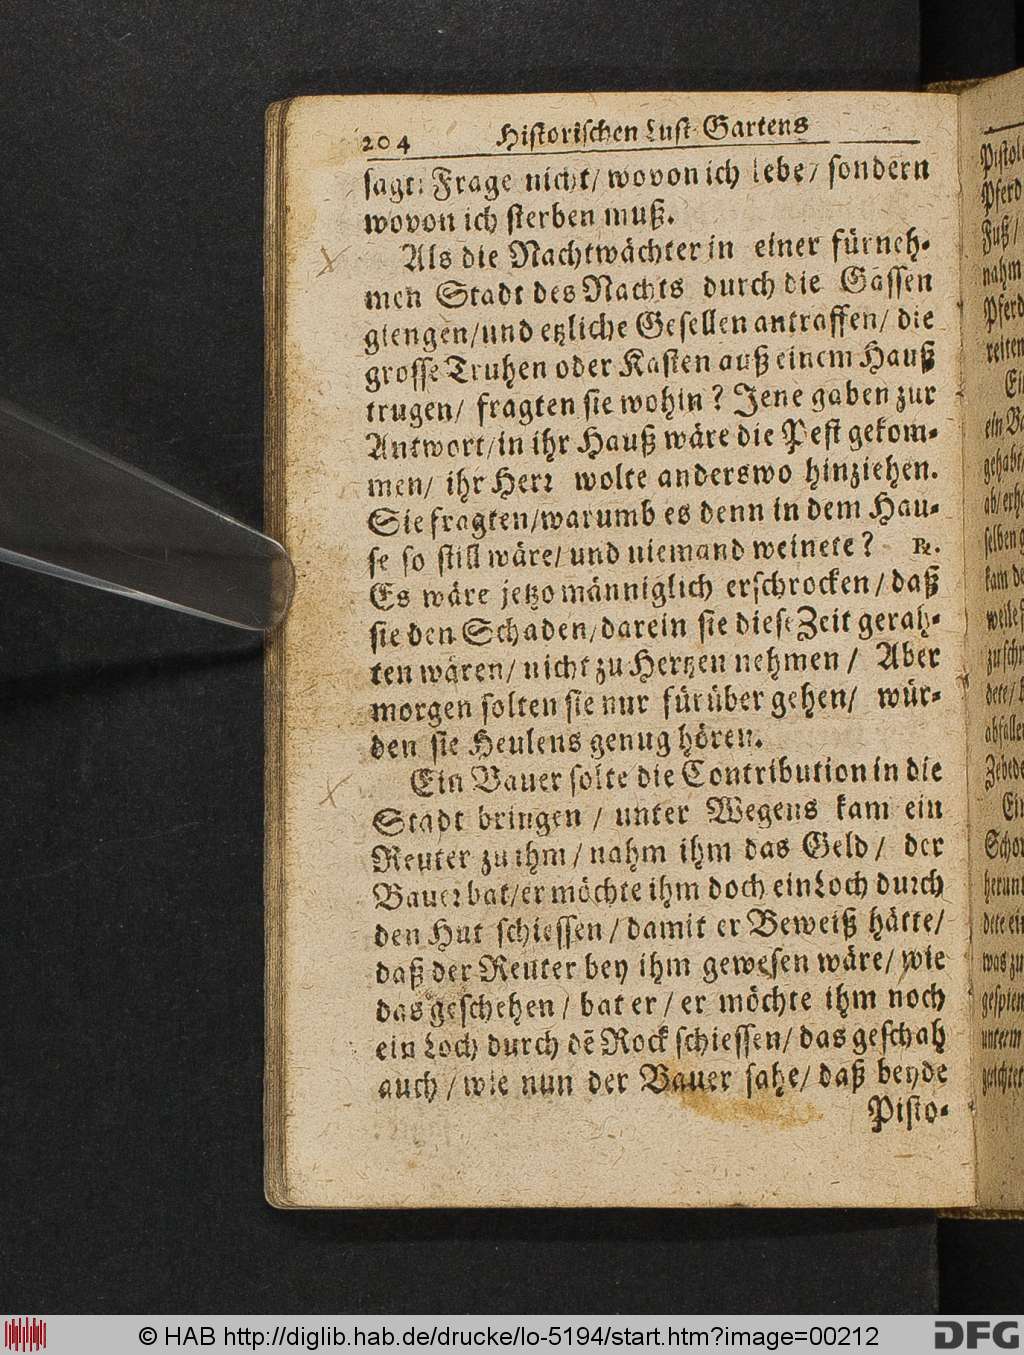 204 Historischen Lust-Gartens
sagt: Frage nicht/ wovon ich lebe/ sondern
wovon ich sterben muß.
Als die Nachtwächter in einer fürneh-
men Stadt des Nachts durch die Gassen
giengen/und etzliche Gesellen antraffen/ die
grosse Truhen oder Kasten auß einem Hauß
trugen/ fragten sie wohin? Jene gaben zur
Antwort/in ihr Hauß wäre die Pest gekom-
men/ ihr Herr wolte anderswo hinziehen.
Sie fragten/warumb es denn in dem Hau-
se so still wäre/ und niemand weinete? ꝶ.
Es wäre jetzo männiglich erschrocken/ daß
sie den Schaden/darein sie diese Zeit gerah-
ten wären/ nicht zu Hertzen nehmen/ Aber
morgen solten sie nur fürüber gehen/ wür-
den sie Heulens genug hören.
Ein Bauer solte die Contribution in die
Stadt bringen/ unter Wegens kam ein
Reuter zu ihm/ nahm ihm das Geld/ der
Bauer bat/er möchte ihm doch ein Loch durch
den Hut schiessen/ damit er Beweiß hätte/
daß der Reuter bey ihm gewesen wäre/ wie
das geschehen/ bat er/ er möchte ihm noch
ein Loch durch dẽ Rock schiessen/ das geschah
auch/ wie nun der Bauer sahe/ daß beyde
Pisto-
Pistol
Pferd
Fuß/
nahm
Pferd
reiten
Ein
ein Ba
gehabt/
ab/erhe
selben g
kam de
weile s
zu schr
dete/
abfalle
Zebede
Ein
Schor
herunt
dete ein
was zu
gespien
unterm
gerichtet
© HAB http://diglib.hab.de/drucke/lo-5194/start.htm?image=00212
DFG